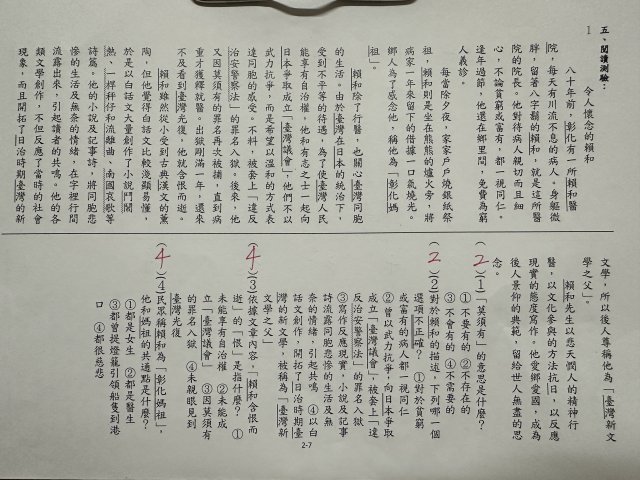 五、閱讀測驗：
1
令人懷念的賴和
八十年前，彰化有一所賴和醫
院，每天有川流不息的病人。身軀微
胖，留著八字鬍的賴和，就是這所醫
院的院長。他對待病人親切而且細
心，不論貧窮或富有，都一視同仁。
逢年過節，他還在鄉里間，免費為窮
人義診。
每當除夕夜，家家戶戶燒銀紙祭
祖，賴和則是坐在熊熊的爐火旁，將
病家一年來留下的借據一口氣燒光。
鄉人為了感念他，稱他為「彰化媽
祖」。
賴和除了行醫，也關心臺灣同胞
的生活。由於臺灣在日本的統治下，
受到不平等的待遇，為了使臺灣人民
能享有自治權，他和有志之士一起向
日本爭取成立「臺灣議會」，他們不以
武力抗爭，而是希望以溫和的方式表
達同胞的感受。不料，被套上「違反
治安警察法」的罪名入獄。後來，他
又因莫須有的罪名再次被捕，直到病
重才獲釋就醫。出獄剛滿一年，還來
不及看到臺灣光復，他就含恨而逝。
賴和雖然從小受到古典漢文的薰
陶，但他覺得白話文比較淺顯易懂，
於是以白話文大量創作了小說鬥鬧
熱、一桿秤仔和流離曲、南國哀歌等
詩篇。他的小說及記事詩，將同胞悲
慘的生活及無奈的情緒，在字裡行間
流露出來，引起讀者的共鳴。他的各
類文學創作，不但反應了當時的社會
現象，而且開拓了日治時期臺灣的新
文學，所以後人尊稱他為「臺灣新文
學之父」。
賴和先生以悲天憫人的精神行
醫，以文化參與的方法抗日，以反應
現實的態度寫作。他愛鄉愛國，成為
後人景仰的典範，留給世人無盡的思
念。
(2)(1)「莫須有」的意思是什麼？
①不要有的 ②不存在的
③不會有的 ④不需要的
(2)(2)對於賴和的描述，下列哪一個
選項不正確？ ①對於貧窮
或富有的病人都一視同仁
②曾以武力抗爭，向日本爭取
成立「臺灣議會」，被套上「違
反治安警察法」的罪名入獄
③寫作反應現實，小說及記事
詩流露同胞悲慘的生活及無
奈的情緒，引起共鳴 ④以白
話文創作，開拓了日治時期臺
灣的新文學，被稱為「臺灣新
文學之父」
(4)(3)依據文章內容，「賴和含恨而
逝」的「恨」是指什麼？ ①
未能享有自治權 ②未能成
立「臺灣議會」 ③因莫須有
的罪名入獄 ④未親眼見到
臺灣光復
(4)(4)民眾稱賴和為「彰化媽祖」，
他和媽祖的共通點是什麼？
①都是女生 ②都是醫生
③都曾提燈籠引領船隻到港
口 ④都很慈悲
2-7